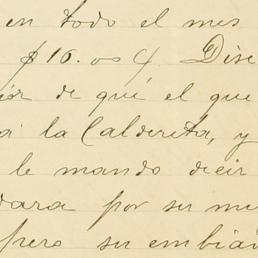 en todo el mes
$16.00 y. Dise
de qué el que
a la Caldereta, y
le mando decir
dara por su me
pero su embia